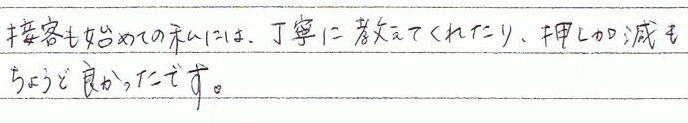 接客も始めての私には、丁寧に教えてくれたり、押し加減も
ちょうど良かったです。